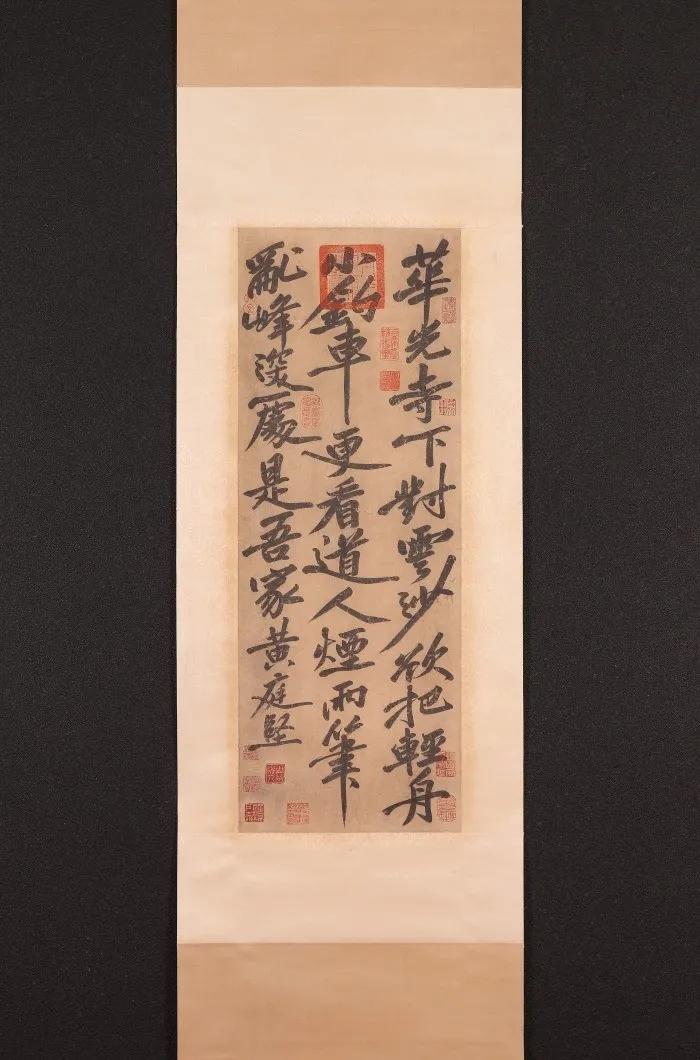 華光寺下對雲沙欲把輕舟
小釣車更看道人煙雨筆
亂峰深處是吾家黃庭堅